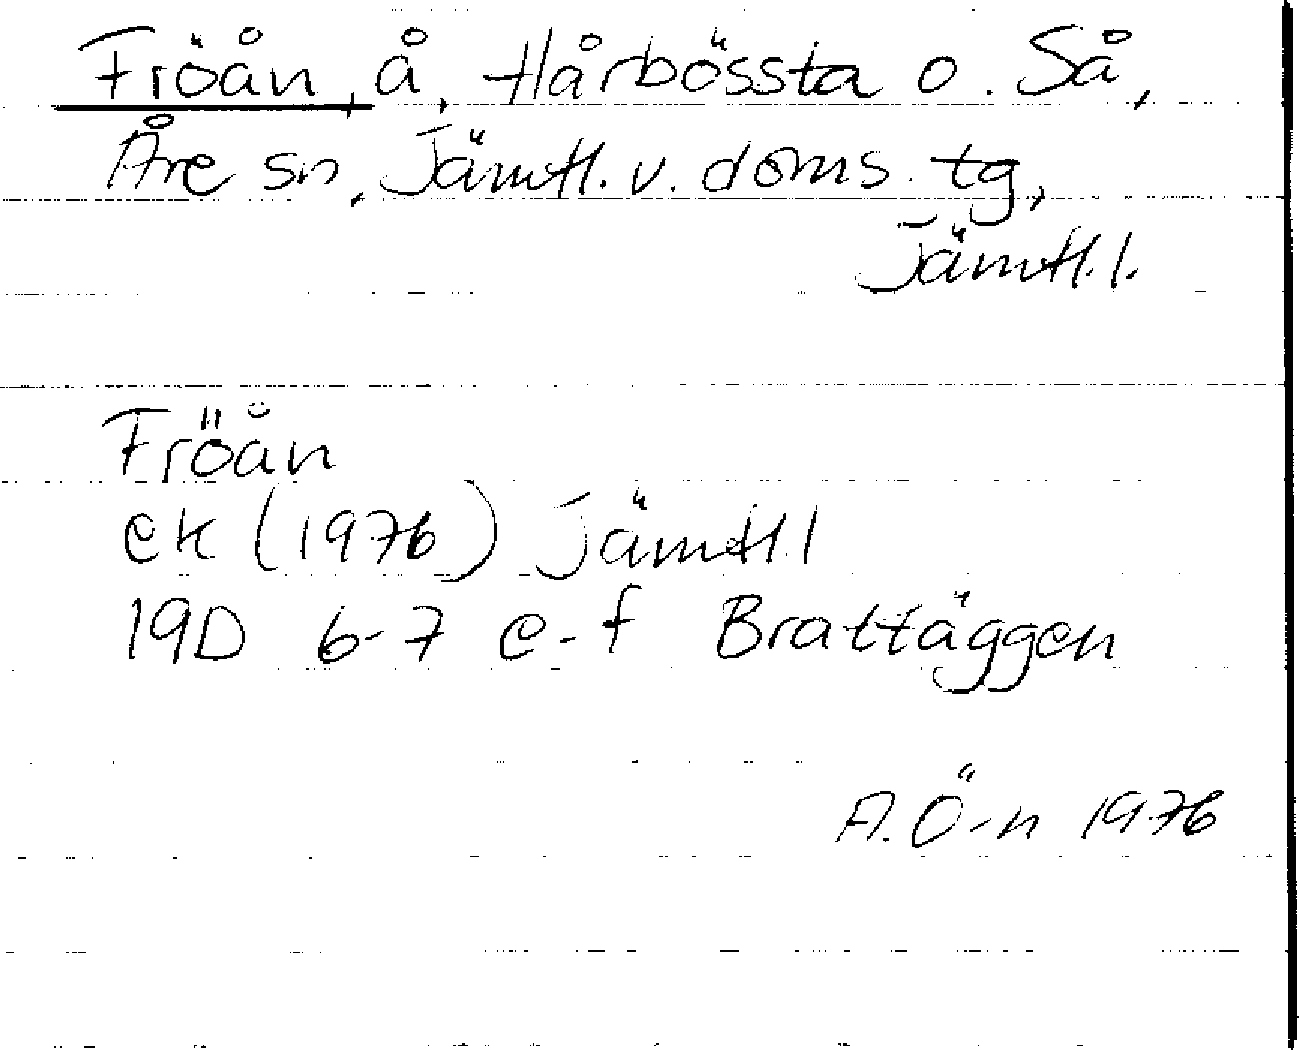 Fröån, å, Hårbössta o. Så,
Åre sn, Jämtl. v. doms. tg,
Jämtl. l.
Fröån
ek (1976) Jämtl. l
19D 6-7 e-f Brattäggen
A. Ö-n 1976